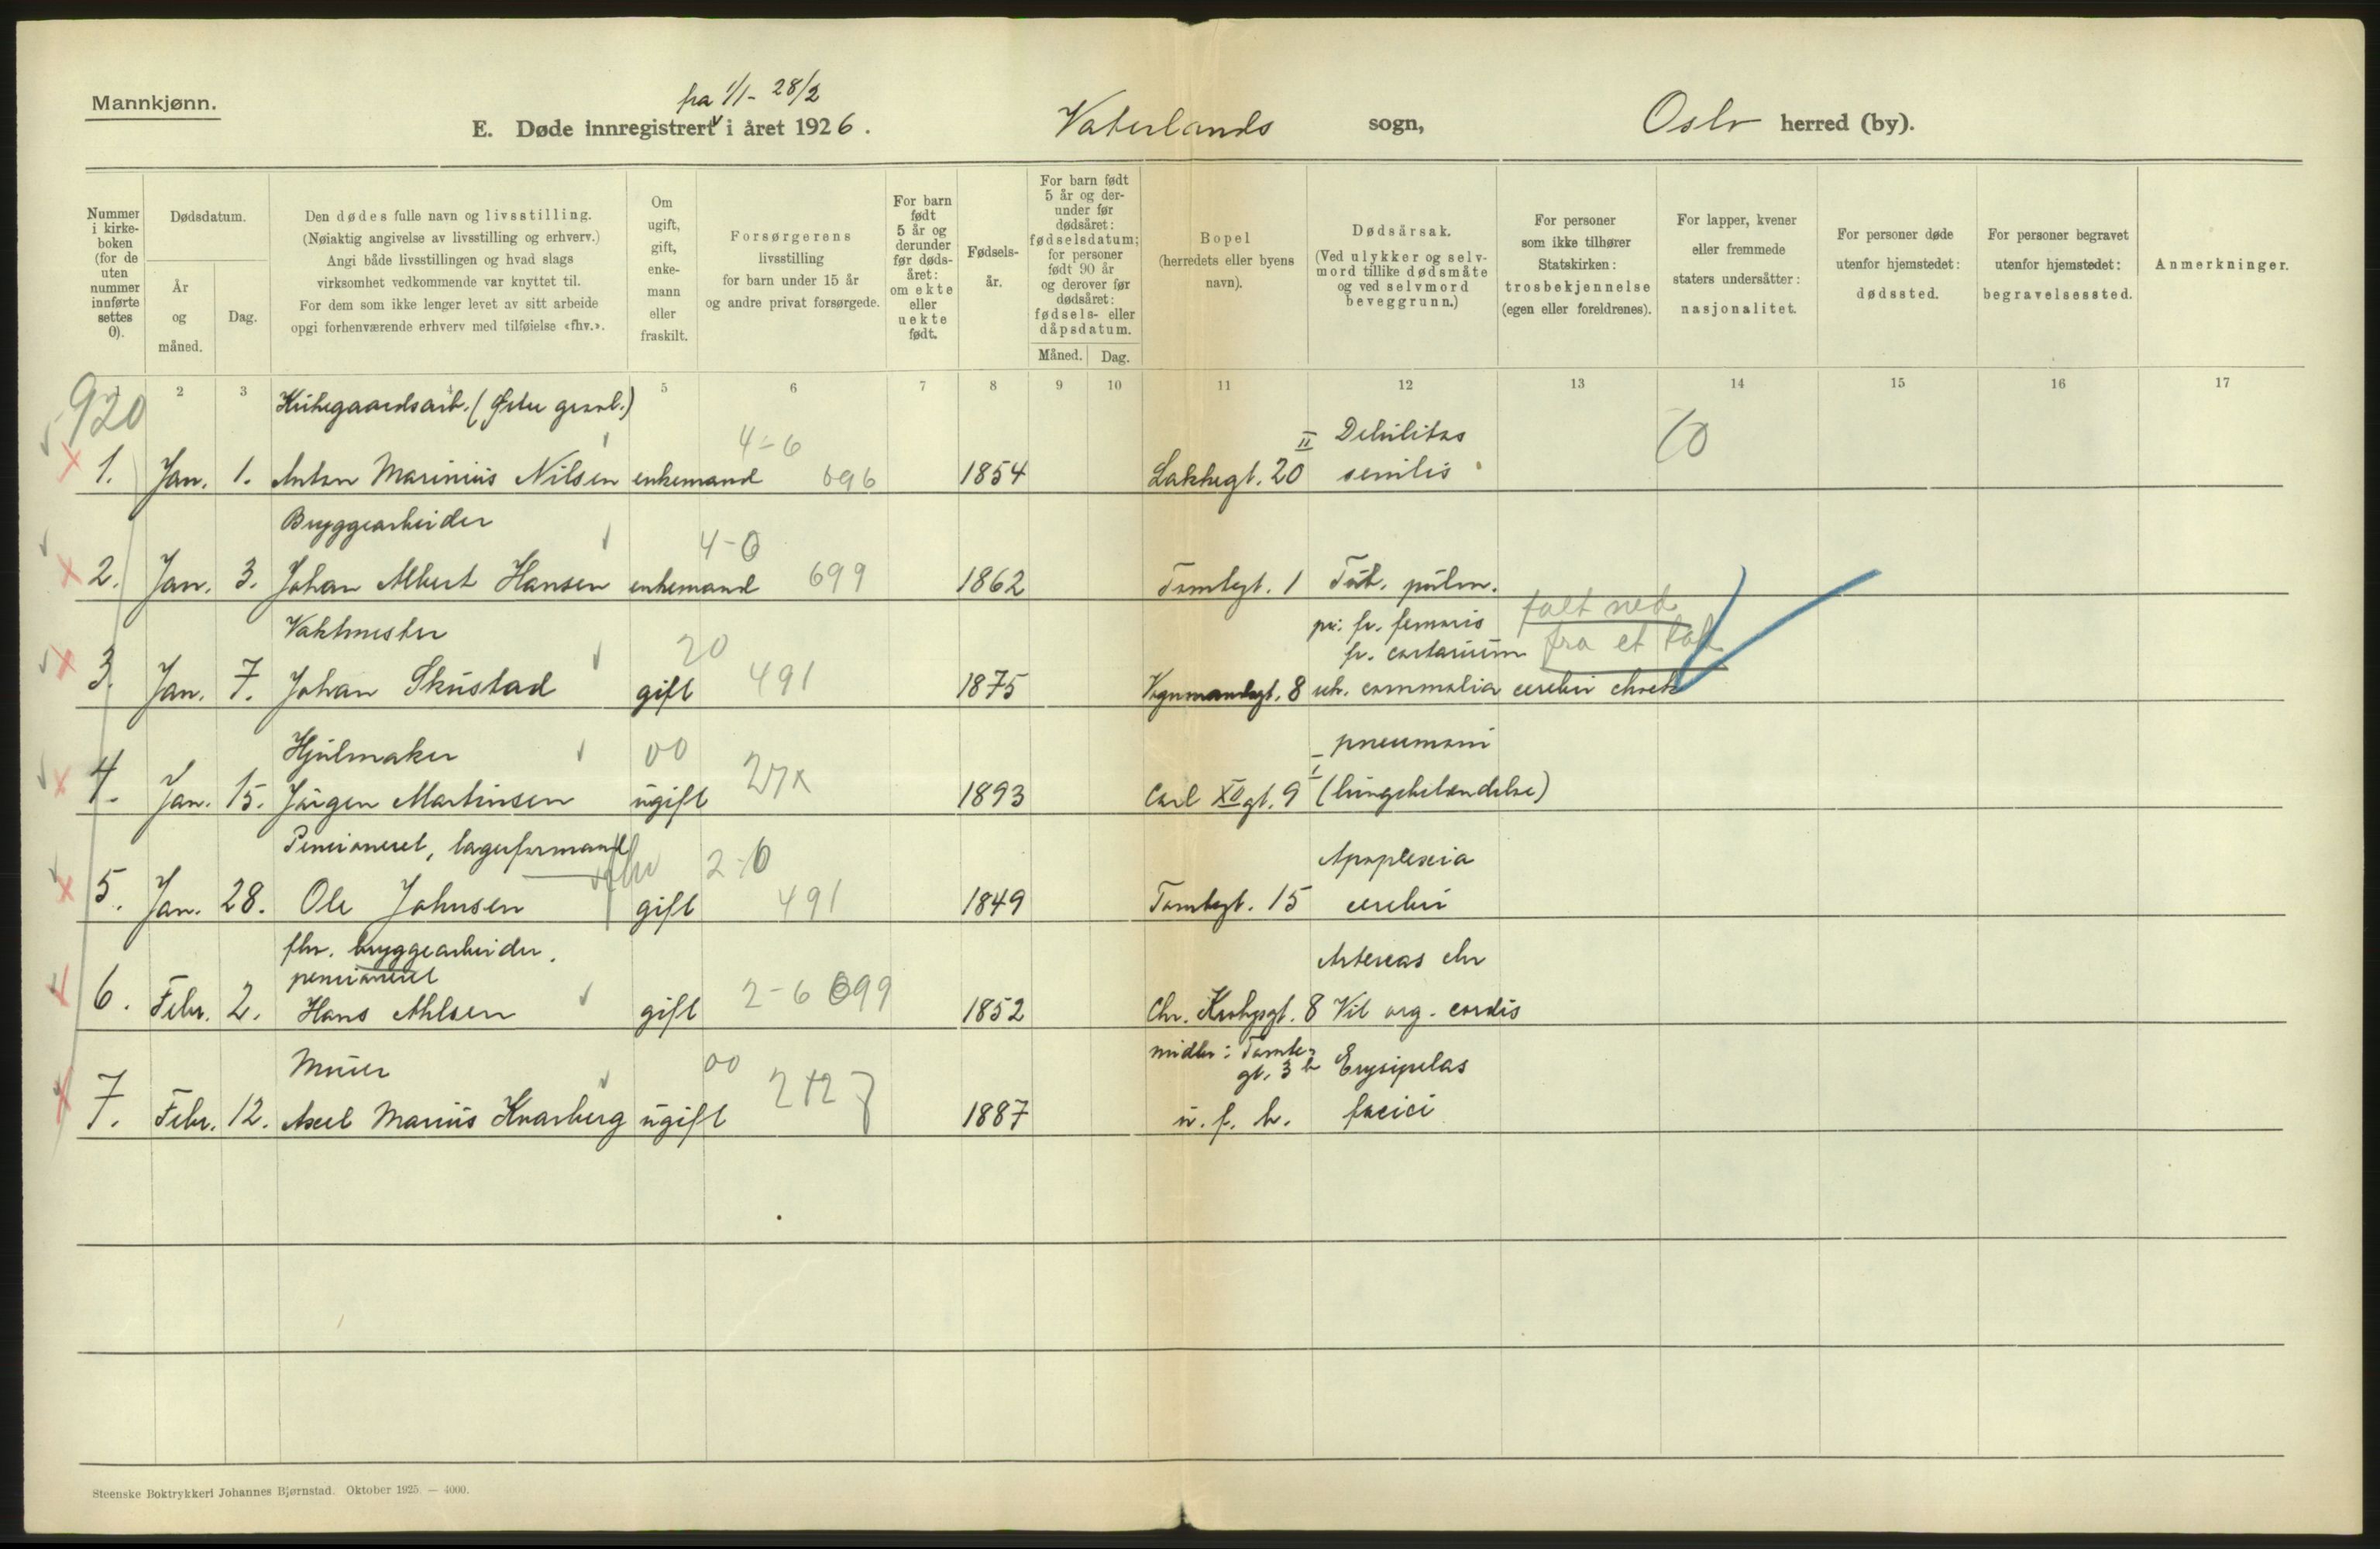 Mannkjønn.
fra 1/1 - 28/2
E. Døde innregistrert i året 1926.
Vaterlands sogn,
Oslo herred (by).
Nummer i kirke-boken (for de uten nummer innførte settes 0).
Dødsdatum.
År og måned.
Dag.
Den dødes fulle navn og livsstilling.
(Nøiaktig angivelse av livsstilling og erhverv.)
Angi både livsstillingen og hvad slags
virksomhet vedkommende var knyttet til.
For dem som ikke lenger levet av sitt arbeide
opgi forhenværende erhverv med tilføielse «fhv.».
Om ugift, gift, enke-mann eller fraskilt.
Forsørgerens
livsstilling
for barn under 15 år
og andre privat forsørgede.
For barn født 5 år og derunder før døds-året: om ekte eller uekte født.
Fødsels-år.
For barn født 5 år og der-under før dødsåret: fødselsdatum; for personer født 90 år og derover før dødsåret: fødsels- eller dåpsdatum.
Måned.
Dag.
Bopel
(herredets eller byens
navn).
Dødsårsak.
(Ved ulykker og selv-
mord tillike dødsmåte
og ved selvmord
beveggrunn.)
For personer
som ikke tilhører
Statskirken:
trosbekjennelse
(egen eller foreldrenes).
For lapper, kvener
eller fremmede
staters undersåtter:
nasjonalitet.
For personer døde
utenfor hjemstedet:
dødssted.
For personer begravet
utenfor hjemstedet:
begravelsessted.
Anmerkninger.
1 2 3 4 5 6 7 8 9 10 11 12 13 14 15 16 17
920
Kirkegaardsarb. (Østre gravl.)
4-6
II Debilitas
1. Jan. 1. Anton Marinius Nilsen enkemand 696 1854 Lakkegt. 20 senilis
Bryggearbeider
4-6
2. Jan. 3. Johan Albert Hansen enkemand 699 1862 Tomtegt. 1 Tub. pulm.
Vaktmester
20
pr. fr. femoris
falt ned
fr. costarum
fra et tak
3. Jan. 7. Johan Skustad gift 491 1875 Vognmandsgt. 8 commotio cerebri
Hjulmaker
00
pneumoni
4. Jan. 15. Jørgen Martinsen ugift 1893 Carl XII gt. 9 (lungebetændelse)
Pensioneret, lagerformand
fhv
2-6
Apoplexia
5. Jan. 28. Ole Johnsen gift 491 1849 Tomtegt. 15 cerebri
fhv. bryggearbeider,
pensioneret
6. Febr. 2. Hans Ahlsen gift 2-6 699 1852 Chr. Krohgsgt. 8 Vit org. cordis
Murer
00
midler: Tomte-
gt. 3 b Erysipelas
7. Febr. 12. Axel Marius Kvarberg ugift 1887 u. f. b. faciei
Steenske Boktrykkeri Johannes Bjørnstad. Oktober 1925. — 4000.